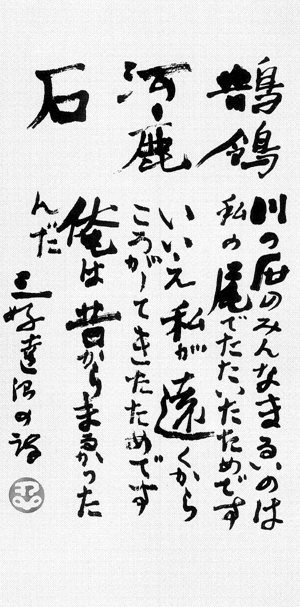 鶺鴒
河鹿
石
川の石のみんなまるいのは
私の尾でたたいたためです
いいえ私が遠くから
ころがってきたためです
俺は昔からまるかった
んだ
三好達治の詩